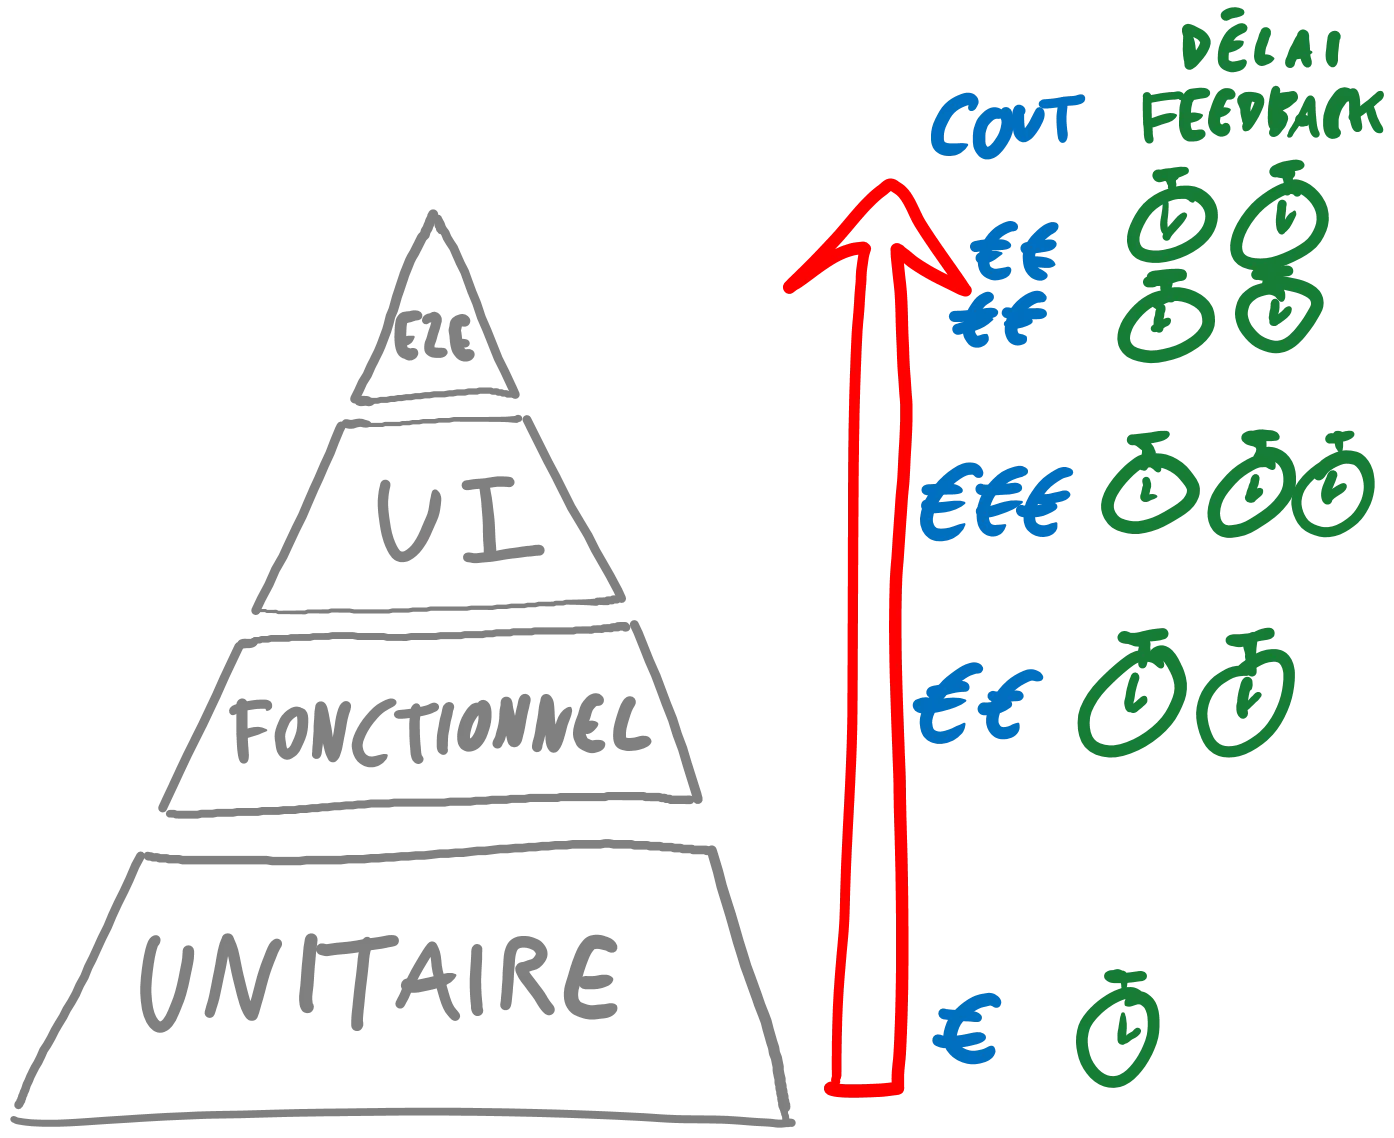 DÉLAI
COUT FEEDBACK
€€
€€
E2E
UI €€€
FONCTIONNEL €€
UNITAIRE €